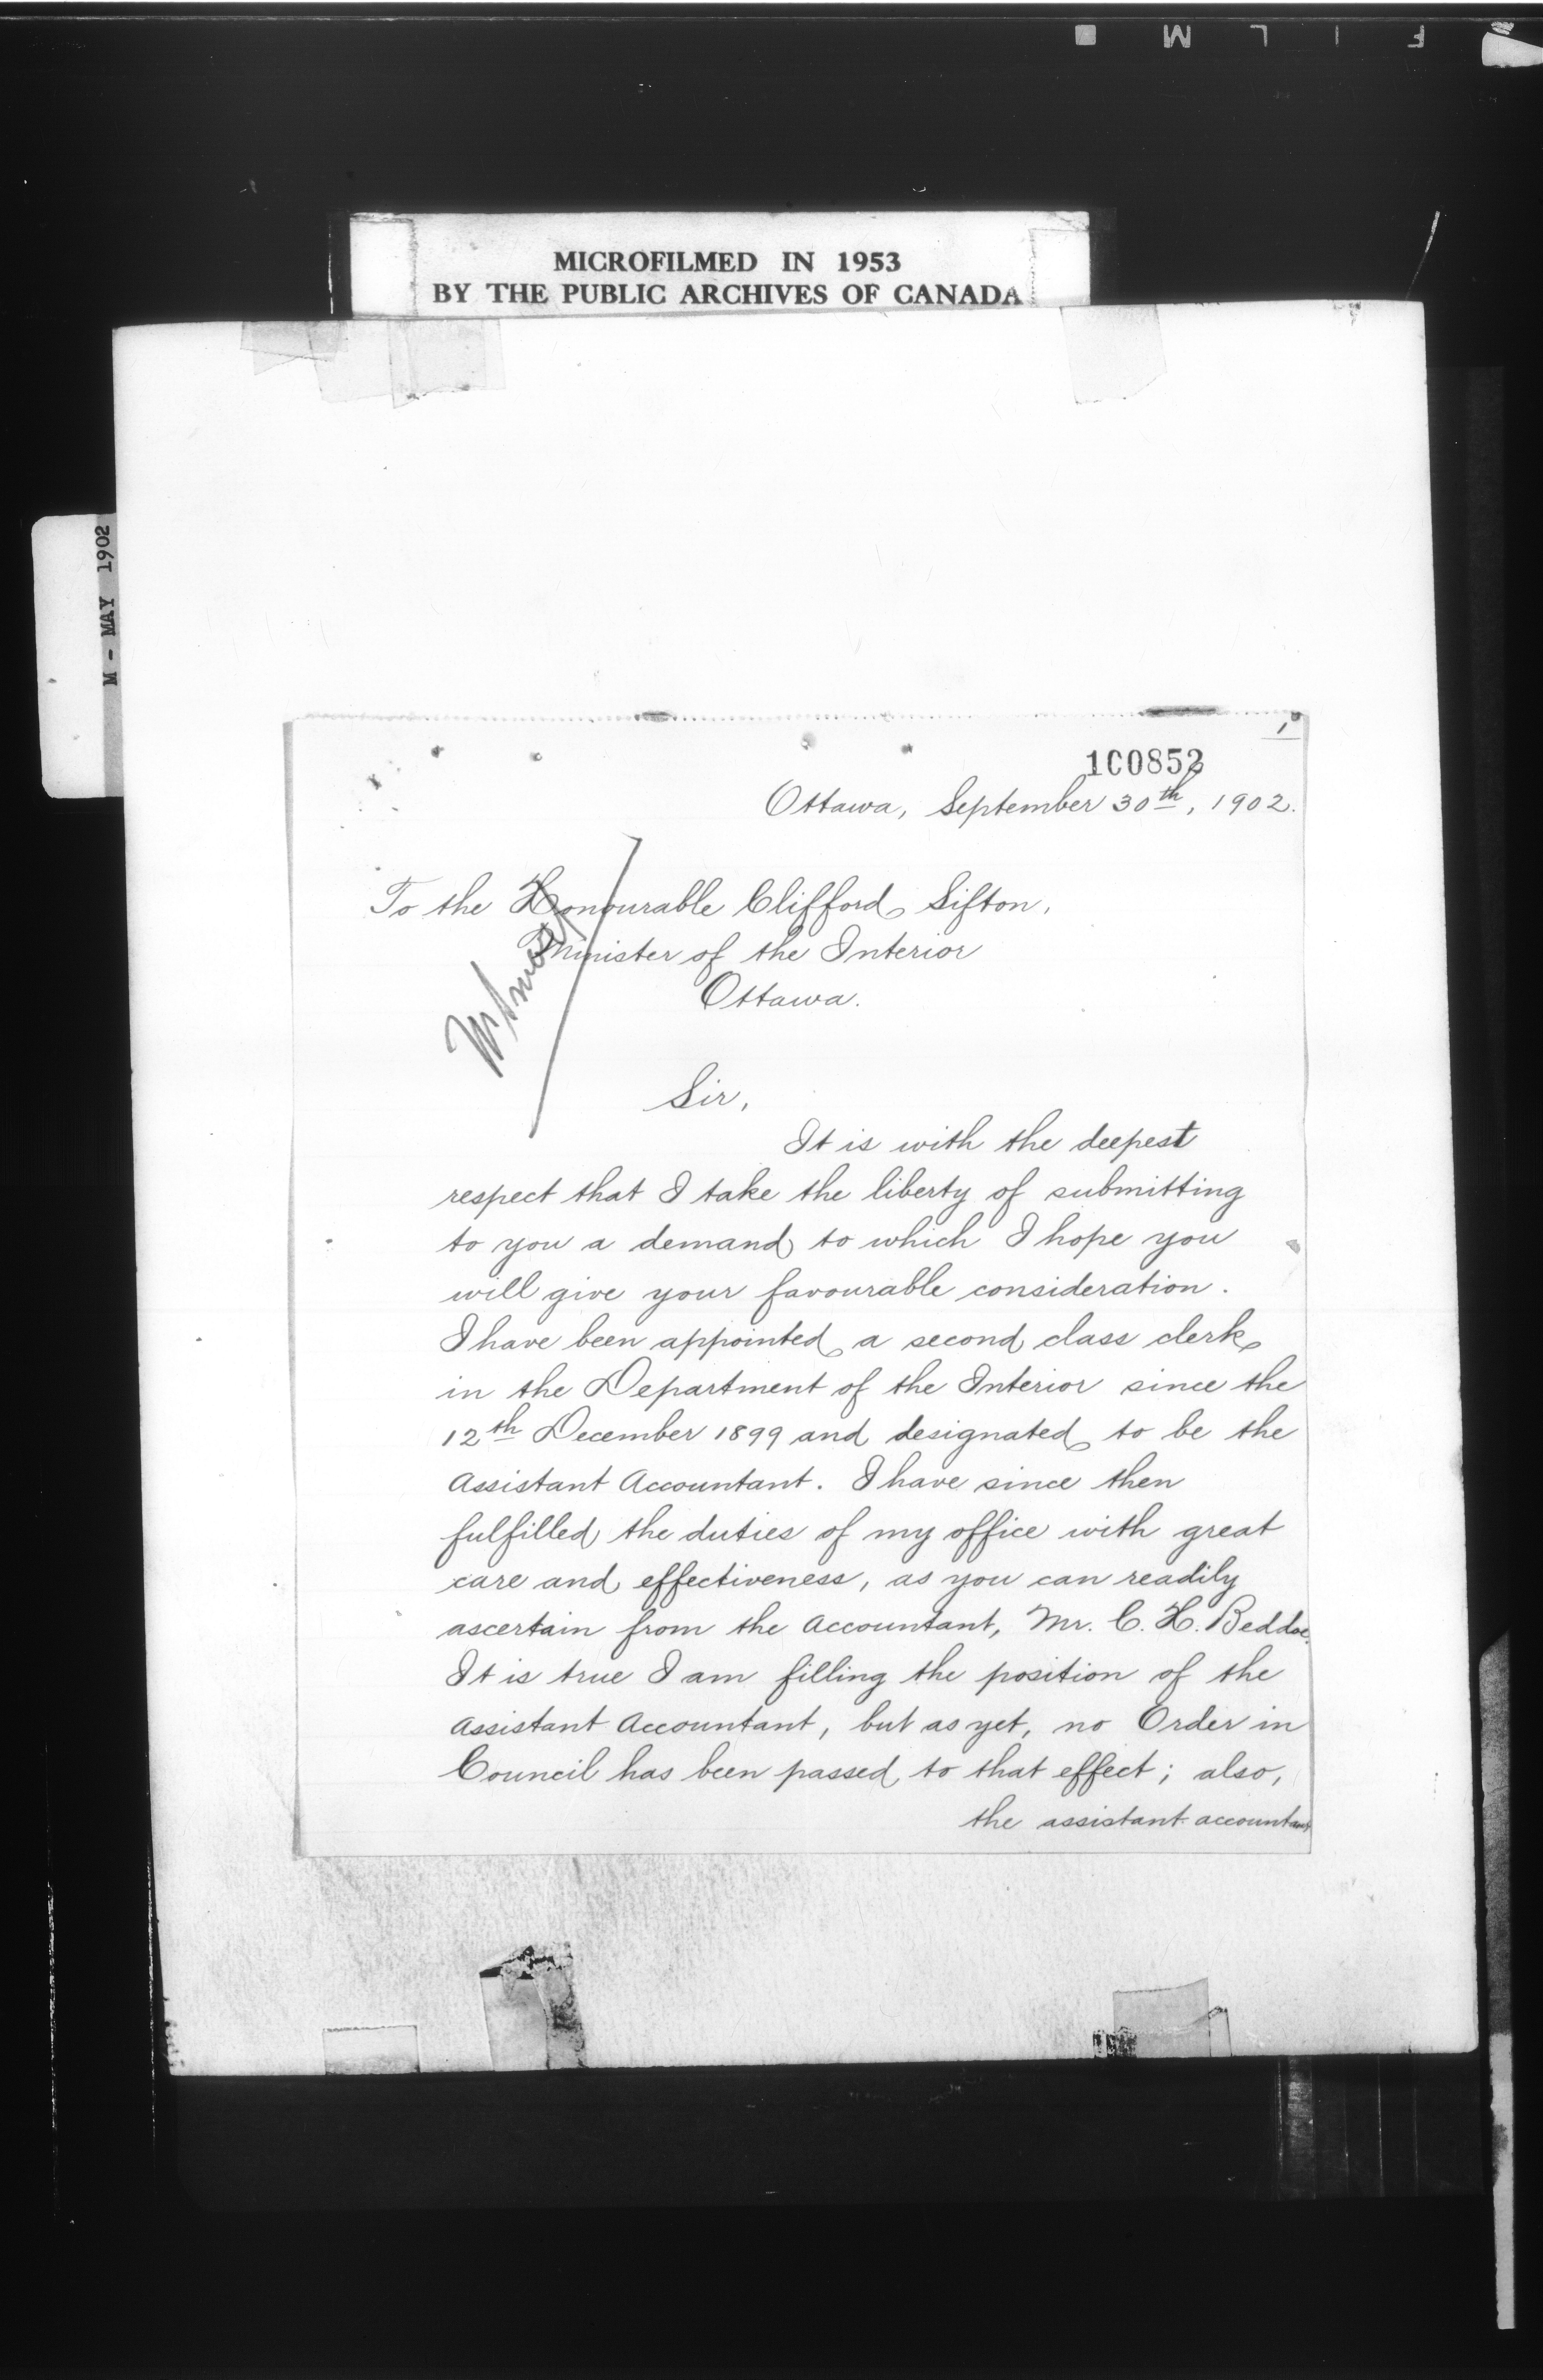 F I L M
MICROFILMED IN 1953
BY THE PUBLIC ARCHIVES OF CANADA
M - MAY 1902
1
100852
Ottawa, September 30th, 1902.
To the Honourable Clifford Sifton,
Minister of the Interior
Ottawa.
Sir,
It is with the deepest
respect that I take the liberty of submitting
to you a demand to which I hope you
will give your favourable consideration.
I have been appointed a second class clerk
in the Department of the Interior since the
12th December 1899 and designated to be the
Assistant Accountant. I have since then
fulfilled the duties of my office with great
care and effectiveness, as you can readily
ascertain from the Accountant, Mr. C. H. Beddoe.
It is true I am filling the position of the
Assistant Accountant, but as yet, no Order in
Council has been passed to that effect; also,
the assistant accountant